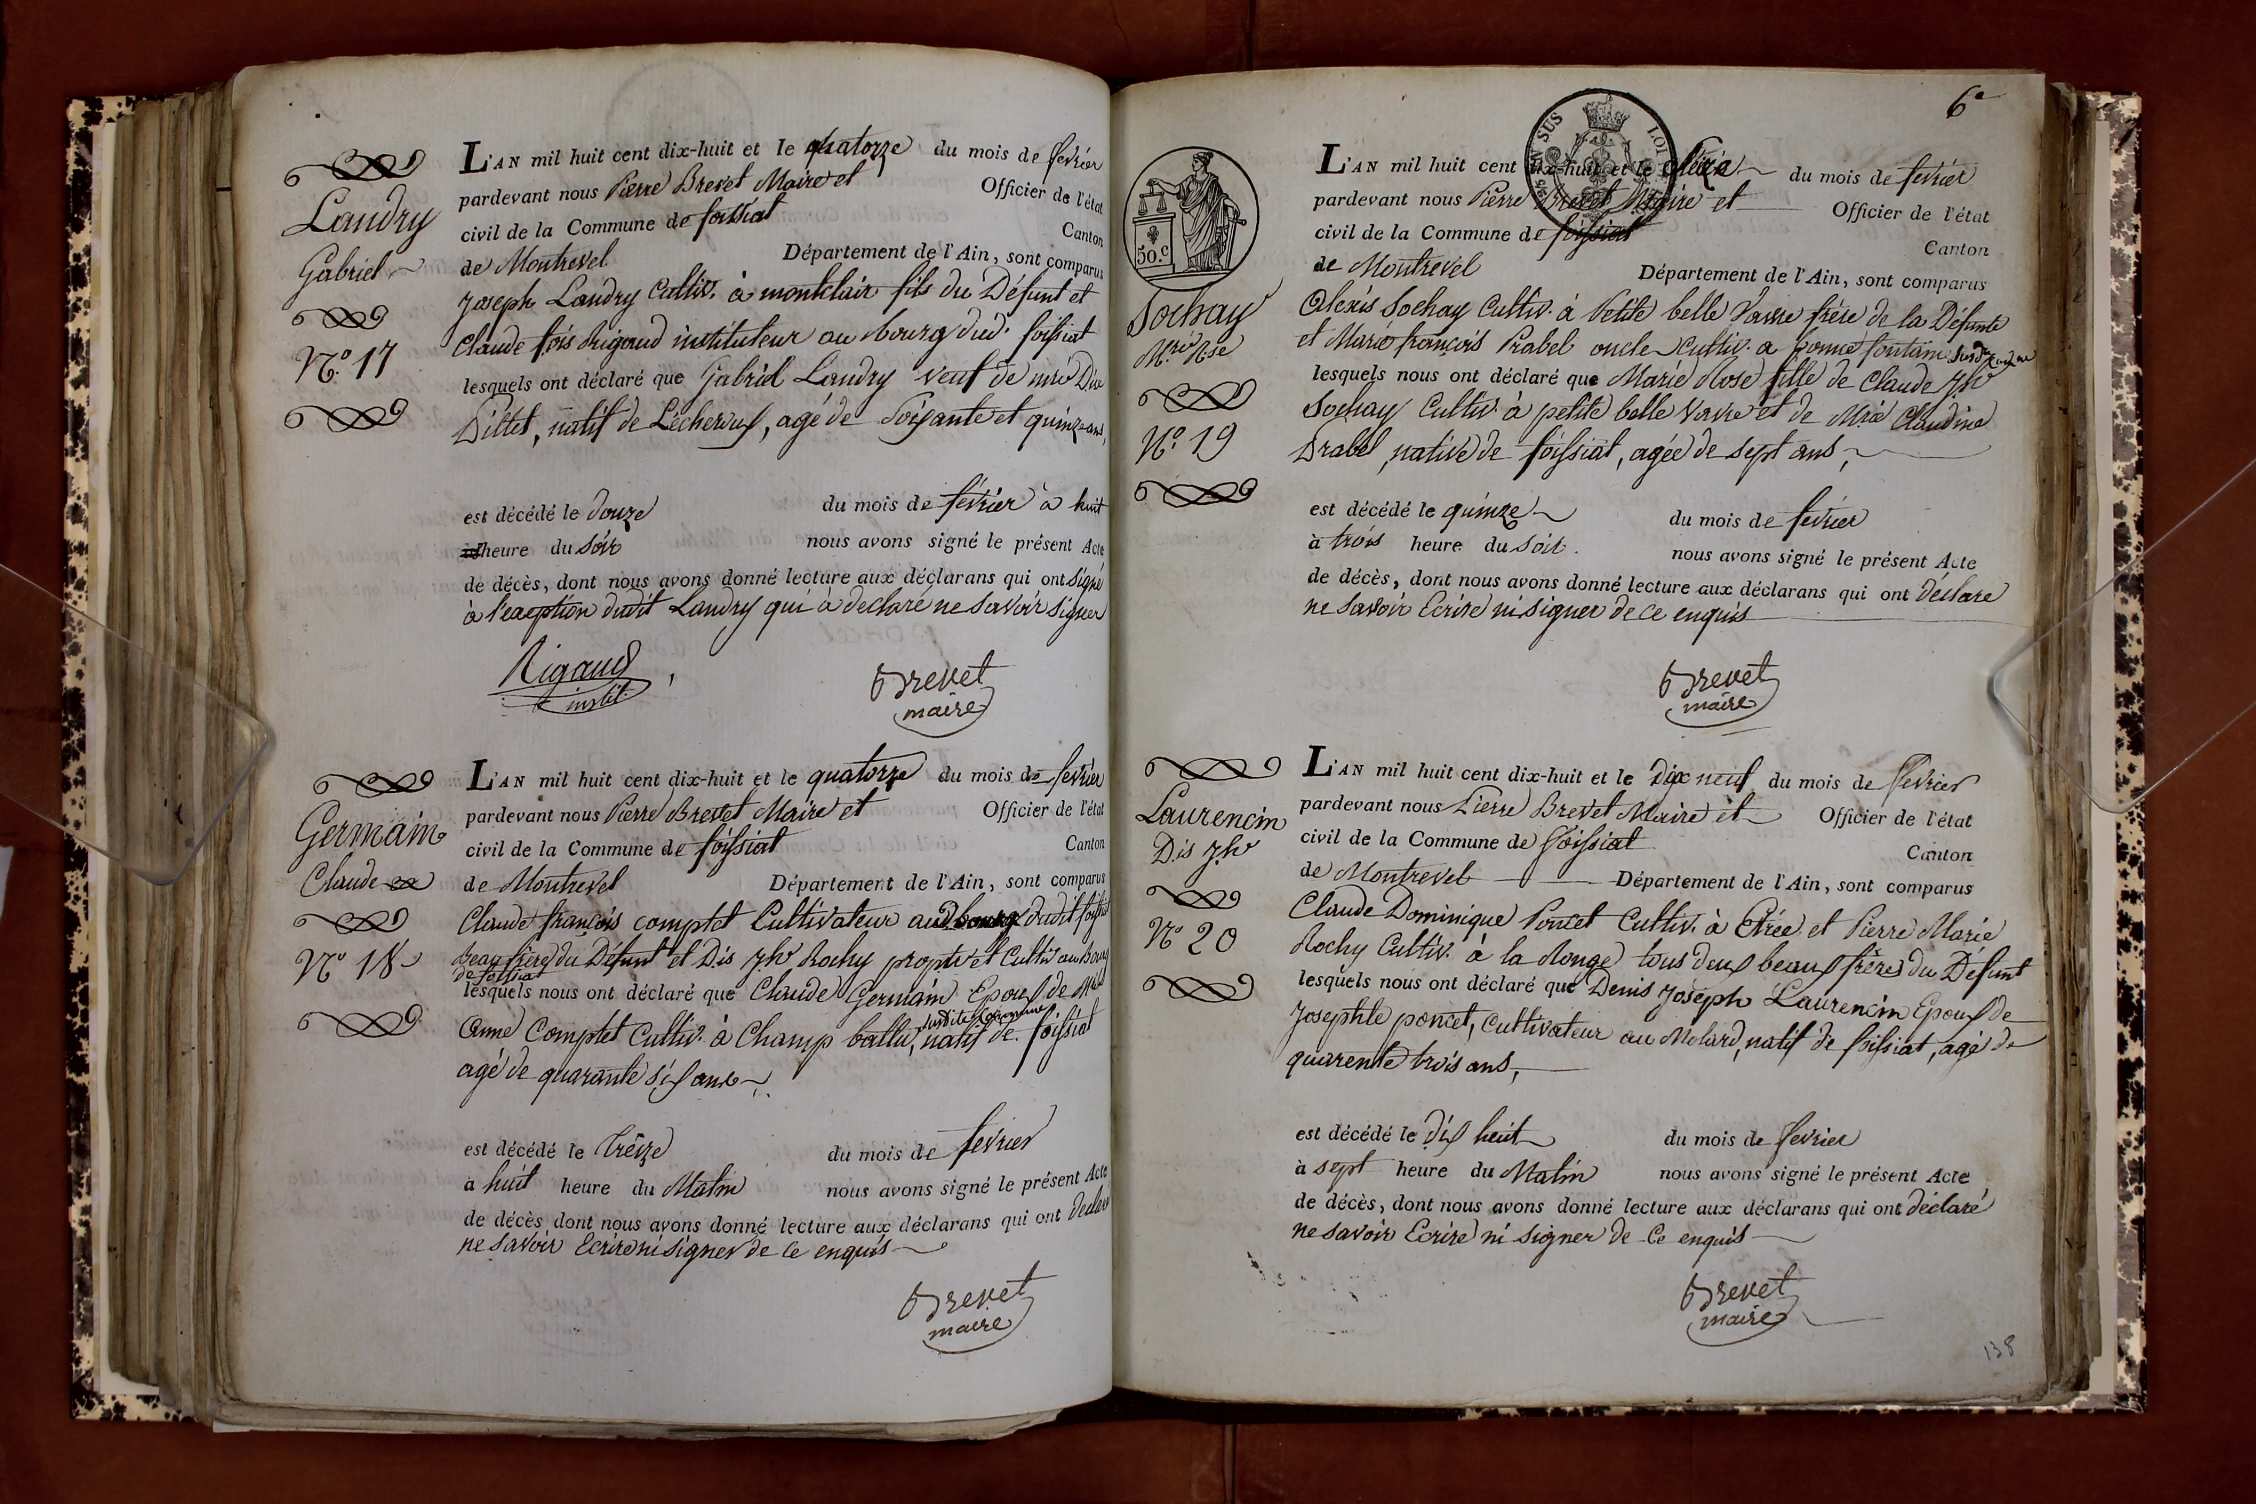 Landry
Gabriel
N.o 17
L'AN mil huit cent dix-huit et le quatorze du mois de fevrier
pardevant nous Pierre Brevet Maire et Officier de l'état
civil de la Commune de foissiat Canton
de Montrevel Département de l'Ain, sont comparus
Joseph Landry Cultiv. à montclair fils du Défunt et
Claude fois Rigaud instituteur au bourg dud. foissiat
lesquels ont déclaré que Gabriel Landry veuf de mrie
Piltet, natif de Lécheroux, agé de Soixante et quinze ans,
est décédé le douze du mois de février à huit
heure du soir nous avons signé le présent Acte
de décès, dont nous avons donné lecture aux déclarans qui ont signé
à l'exception dudit Landry qui à declaré ne savoir signer
Rigaud
instit
Brevet
maire
Germain
Claude
No 18
L'AN mil huit cent dix-huit et le quatorze du mois de fevrier
pardevant nous Pierre Brevet Maire et Officier de l'état
civil de la Commune de foissiat Canton
de Montrevel Département de l'Ain, sont comparus
Claude françois comptet Cultivateur au bourg dudit foissiat
beau frere du Défunt et Dis Jh Rochy propre et Cultiv au Bourg
de foissiat
lesquels nous ont déclaré que Claude Germain Epoux de Mrie
susdite Commune
Anne Comptet Cultiv. à Champ battu, natif de foissiat
agé de quarante six ans
est décédé le treize du mois de fevrier
à huit heure du Matin nous avons signé le présent Acte
de décès dont nous avons donné lecture aux déclarans qui ont declaré
ne savoir Ecrire ni signer de ce enquis
Brevet
maire
6e
50.c
Sochay
M.rie Rse
N.o 19
L'AN mil huit cent dix-huit et le Seize du mois de fevrier
pardevant nous Pierre Brevet Maire et Officier de l'état
civil de la Commune de foissiat Canton
de Montrevel Département de l'Ain, sont comparus
Alexis Sochay Cultiv. à Petite belle Vavre frère de la Défunte
et Marie françois Prabel oncle Cultiv. a bonne fontaine
lesquels nous ont déclaré que Marie Rose fille de Claude Jh
Sochay Cultiv. à petite belle Vavre et de Mrie Claudine
Prabel, native de foissiat, agée de sept ans,
est décédé le quinze du mois de fevrier
à trois heure du soir. nous avons signé le présent Acte
de décès, dont nous avons donné lecture aux déclarans qui ont déclaré
ne savoir Ecrire ni signer de ce enquis
Brevet
maire
Laurencin
Dis Jh
No 20
L'AN mil huit cent dix-huit et le Dix neuf du mois de fevrier
pardevant nous Pierre Brevet Maire et Officier de l'état
civil de la Commune de foissiat Canton
de Montrevel Département de l'Ain, sont comparus
Claude Dominique Poncet Cultiv. à Etrée et Pierre Marie
Rochy Cultiv. à la Ronge tous deux beaux frères du Défunt
lesquels nous ont déclaré que Denis Joseph Laurencin Epoux de
Josephte poncet, cultivateur au Molard, natif de foissiat, agé de
quarente trois ans,
est décédé le dix huit du mois de fevrier
à sept heure du Matin nous avons signé le présent Acte
de décès, dont nous avons donné lecture aux déclarans qui ont déclaré
ne savoir Ecrire ni signer de Ce enquis
Brevet
maire
138